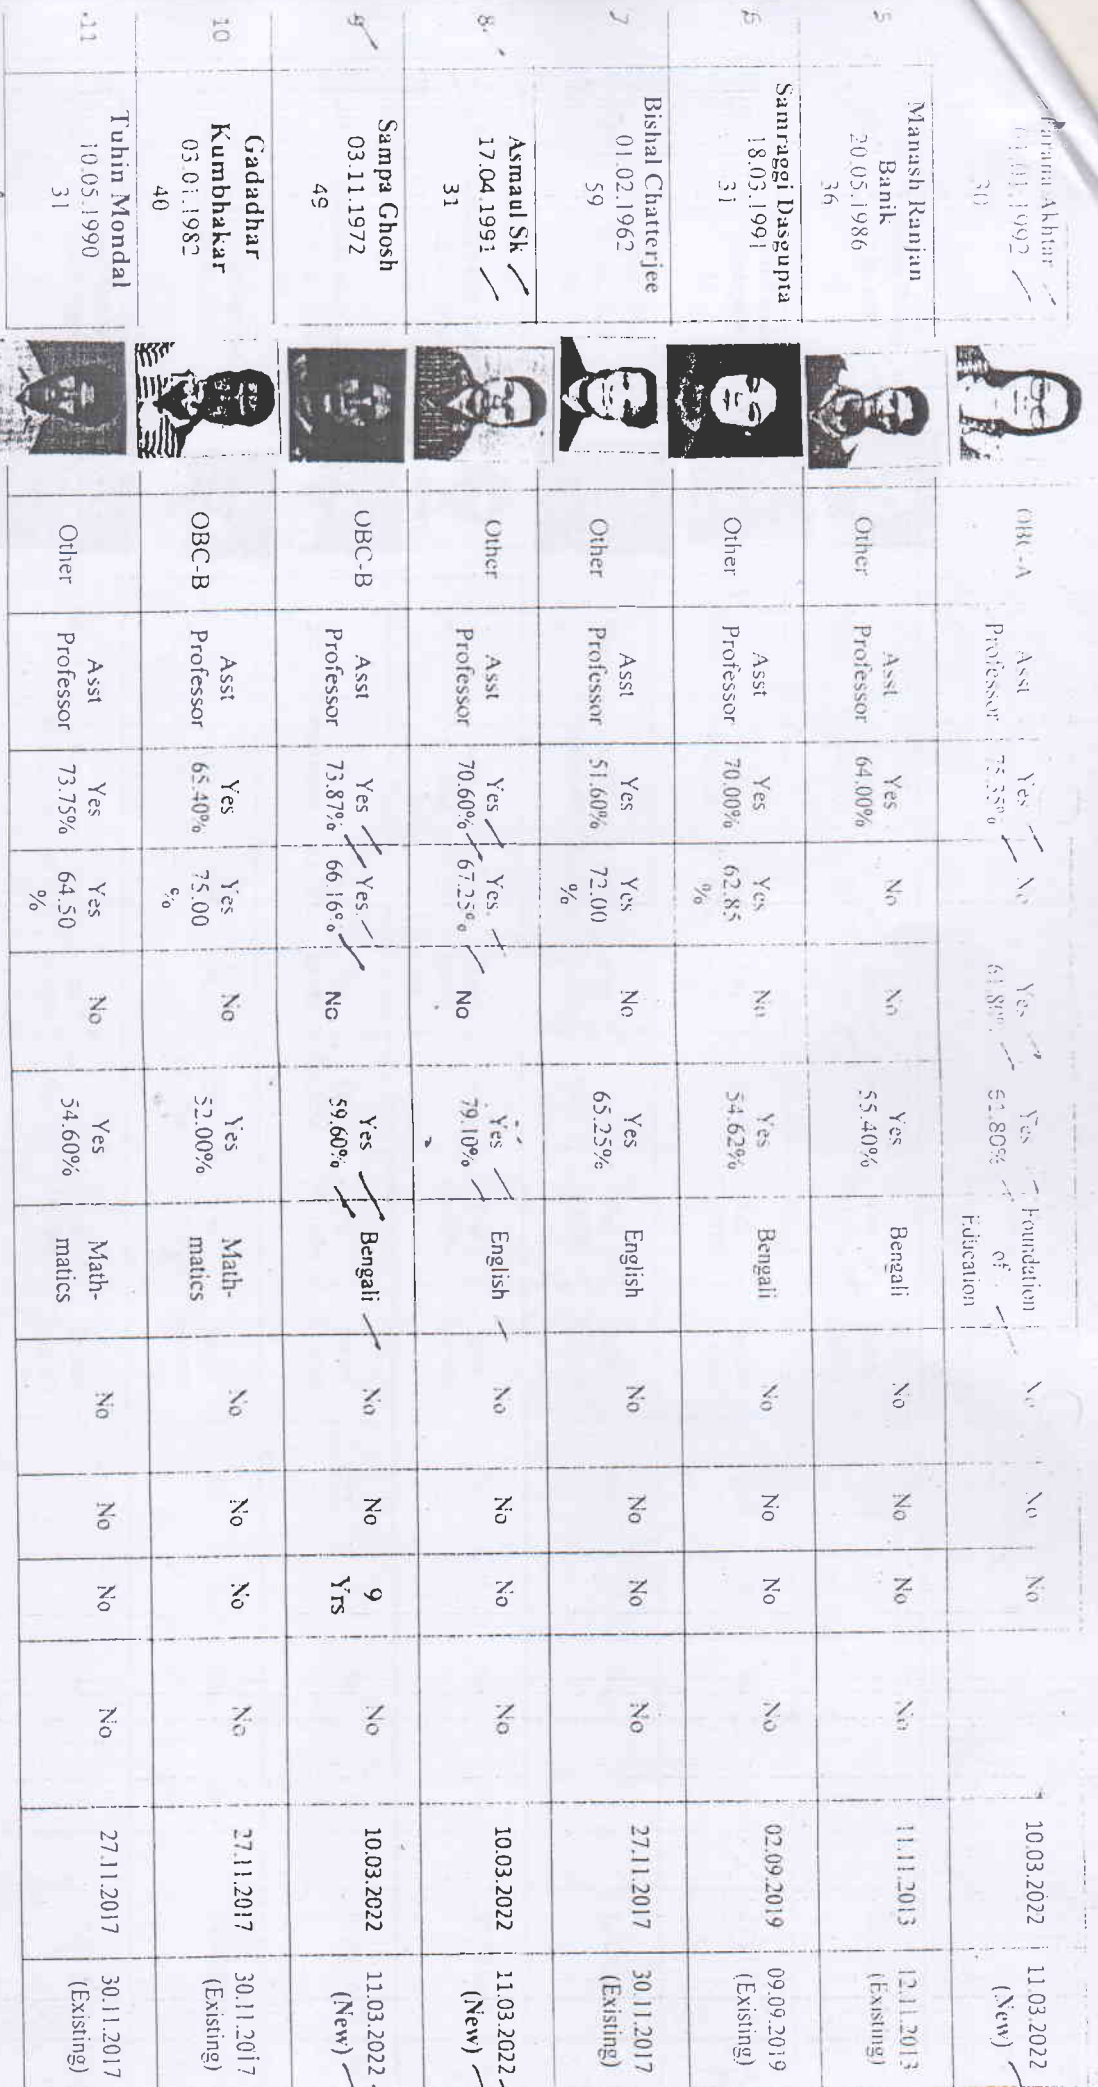 Farana Akhtar
30
OBC-A
Asst
Professor
Yes
75.35%
No
Yes
61.80%
Yes
61.80%
Foundation
of
Education
No
No
No
10.03.2022
11.03.2022
(New)
5
Manash Ranjan
Banik
20.05.1986
36
Other
Asst
Professor
Yes
64.00%
No
No
Yes
55.40%
Bengali
No
No
No
No
11.11.2013
12.11.2013
(Existing)
6
Samraggi Dasgupta
18.03.1991
31
Other
Asst
Professor
Yes
70.00%
Yes
62.85
%
No
Yes
54.62%
Bengali
No
No
No
No
02.09.2019
09.09.2019
(Existing)
7
Bishal Chatterjee
01.02.1962
59
Other
Asst
Professor
Yes
51.60%
Yes
72.00
%
No
Yes
65.25%
English
No
No
No
No
27.11.2017
30.11.2017
(Existing)
8.
Asmaul Sk
17.04.1991
31
Other
Asst
Professor
Yes
70.60%
Yes
67.25%
No
Yes
79.10%
English
No
No
No
No
10.03.2022
11.03.2022
(New)
9
Sampa Ghosh
03.11.1972
49
OBC-B
Asst
Professor
Yes
73.87%
Yes
66.16%
No
Yes
59.60%
Bengali
No
No
9
Yrs
No
10.03.2022
11.03.2022
(New)
10
Gadadhar
Kumbhakar
03.01.1982
40
OBC-B
Asst
Professor
Yes
65.40%
Yes
75.00
%
No
Yes
52.00%
Math-
matics
No
No
No
No
27.11.2017
30.11.2017
(Existing)
11
Tuhin Mondal
10.05.1990
31
Other
Asst
Professor
Yes
73.75%
Yes
64.50
%
No
Yes
54.60%
Math-
matics
No
No
No
No
27.11.2017
30.11.2017
(Existing)